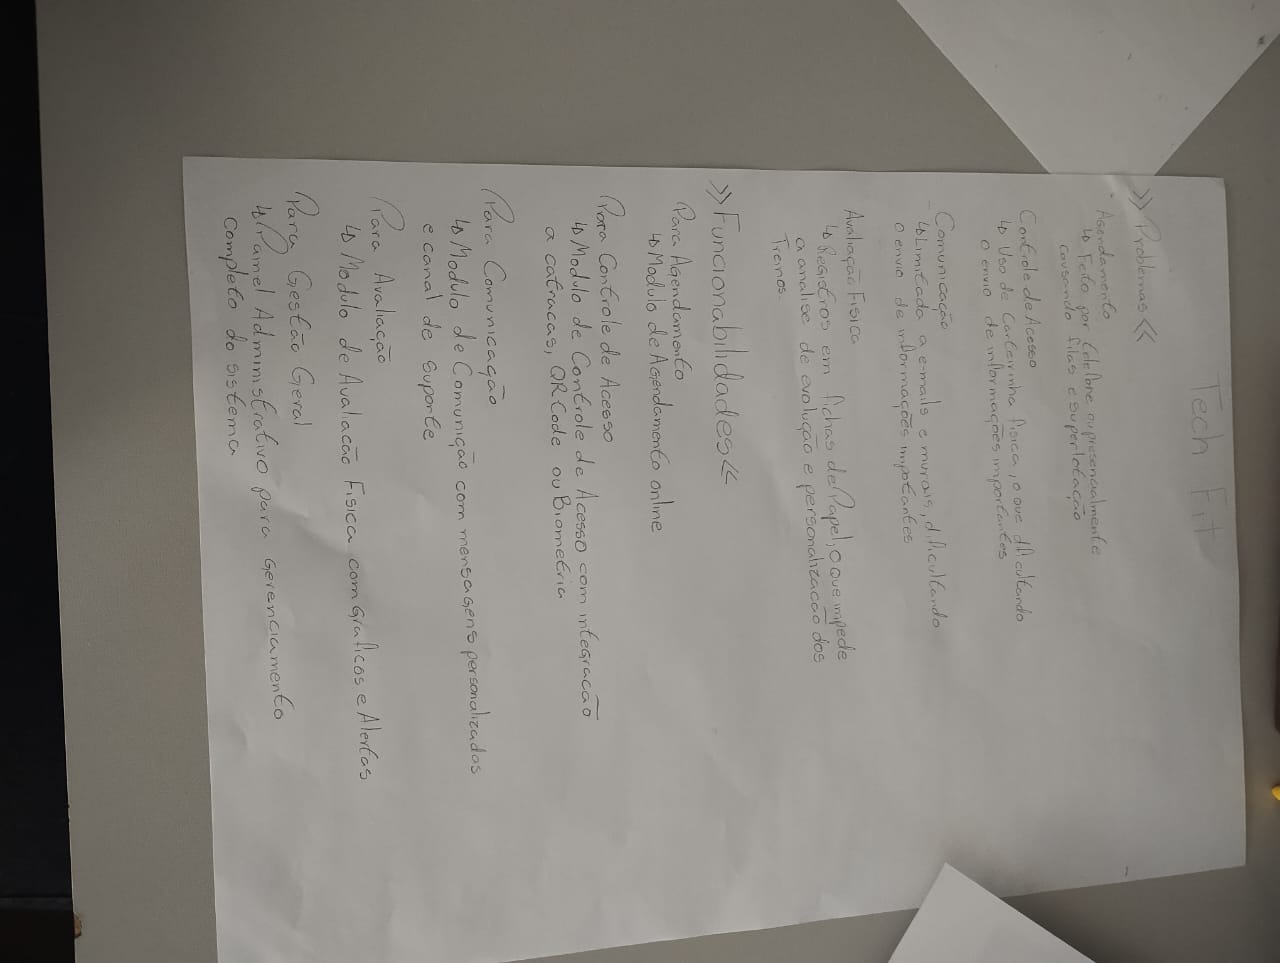 Tech Fit
>> Problemas <<
Agendamento
↳ Feito por telefone ou presencialmente
causando filas e superlotação
Controle de Acesso
↳ Uso de Carteirinha fisica, o que dificultando
o envio de informações importantes
- Comunicação
↳ Limitada a e-mails e murais, dificultando
o envio de informações importantes
Avaliação Fisica
↳ Registros em fichas de Papel, o que impede
a analise de evolução e personalização dos
Treinos.
>> Funcionabilidades <<
Para Agendamento
↳ Modulo de Agendamento online
Para Controle de Acesso
↳ Modulo de Controle de Acesso com integração
a catracas, QR Code ou Biometria
Para Comunicação
↳ Modulo de Comunição com mensagens personalizados
e canal de suporte
Para Avaliação
↳ Modulo de Avaliação Fisica com Graficos e Alertas
Para Gestão Geral
↳ Painel Administrativo para Gerenciamento
completo do sistema